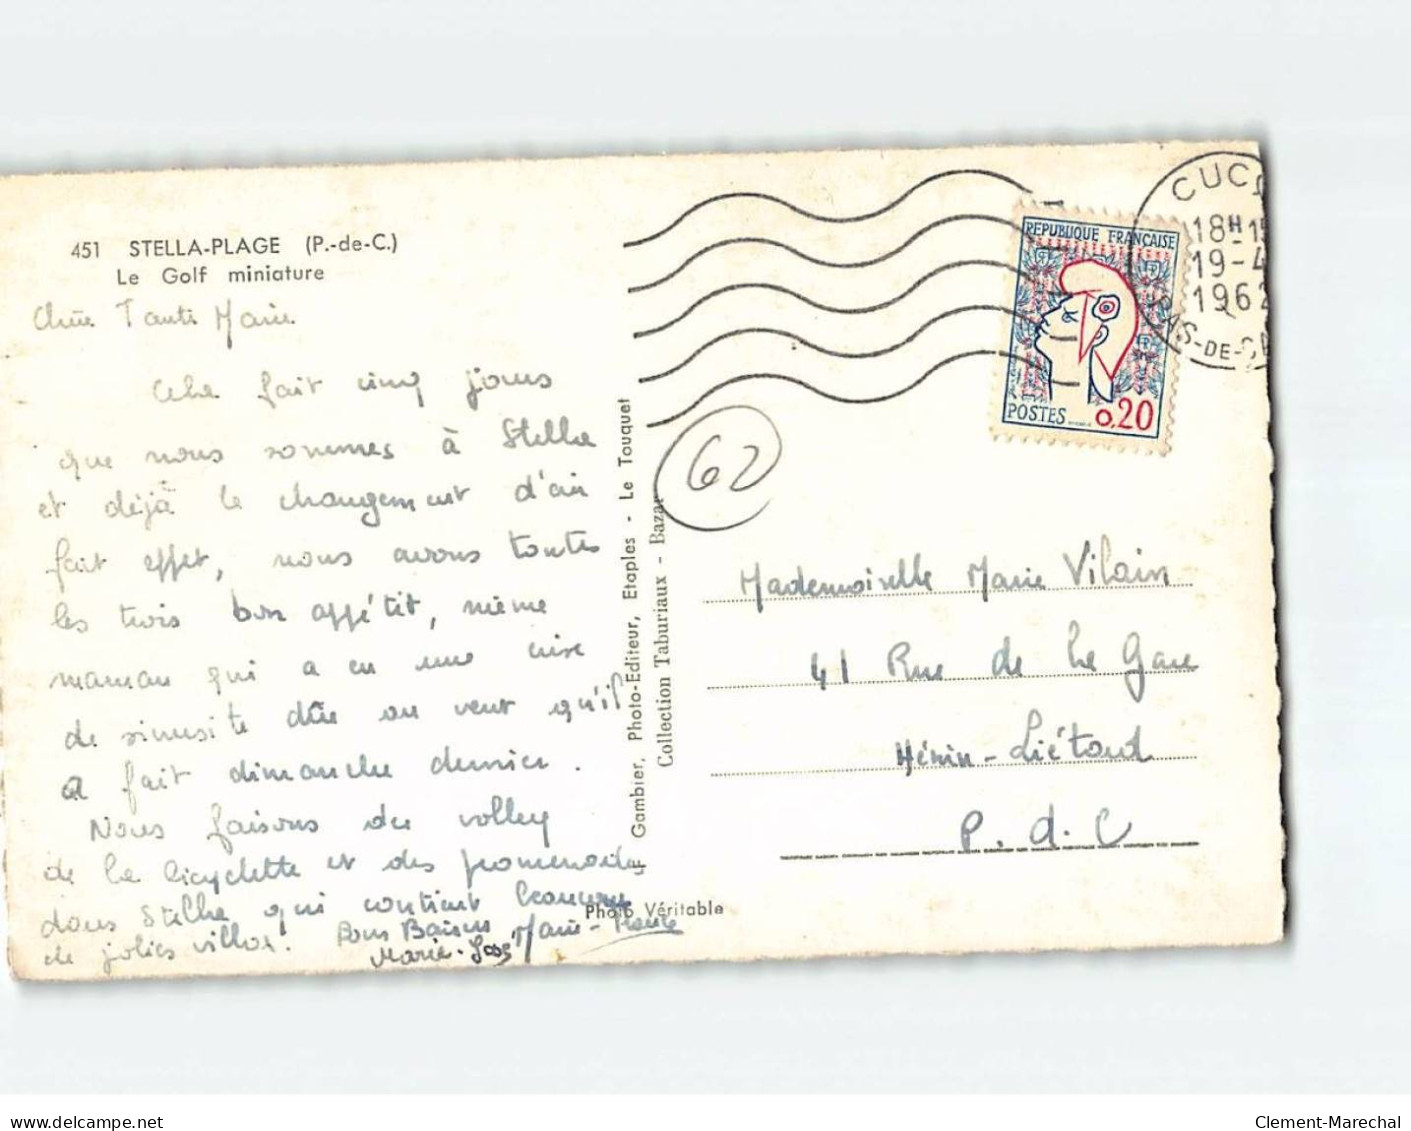 451 STELLA-PLAGE (P.-de-C.)
Le Golf miniature
Chère Tante Marie
Cela fait cinq jours
que nous sommes à Stella
et déjà le changement d'air
fait effet, nous avons toutes
les trois bon appétit, même
maman qui a eu une crise
de sinusite dûe au vent qu'il
a fait dimanche dernier.
Nous faisons du volley
de la bicyclette et des promenades
dans Stella qui contient beaucoup
de jolies villas. Bons Baisers Marie-
Marie-José
F Gambier, Photo-Editeur, Etaples - Le Touquet
Collection Taburiaux - Bazar
Photo Véritable
62
REPUBLIQUE FRANÇAISE
POSTES 0,20
CUCQ
18H 15
19-4
1962
PAS-DE-C
Mademoiselle Marie Vilain
41 Rue de la Gare
Hénin-Liétard
P. d. C
delcampe.net
Clement-Marechal